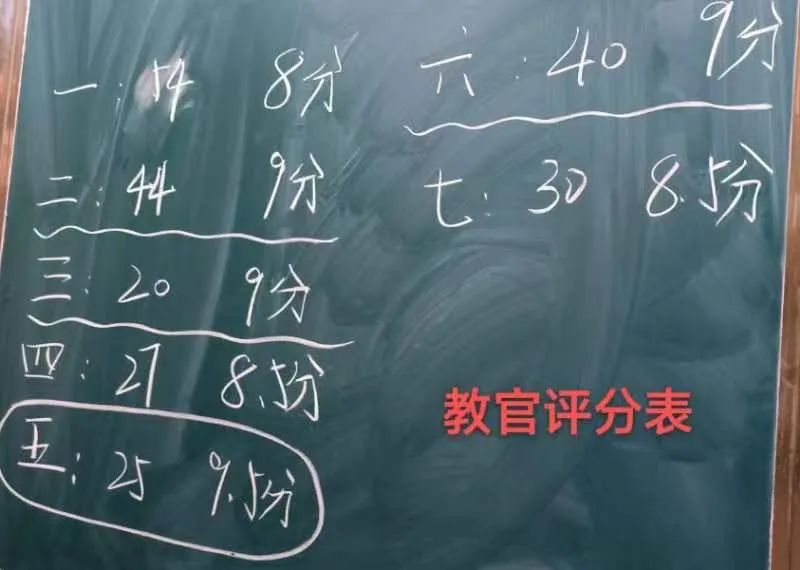 一: 54 8分
二: 44 9分
三: 20 9分
四: 27 8.5分
五: 25 9.5分
六: 40 9分
七: 30 8.5分
教官评分表